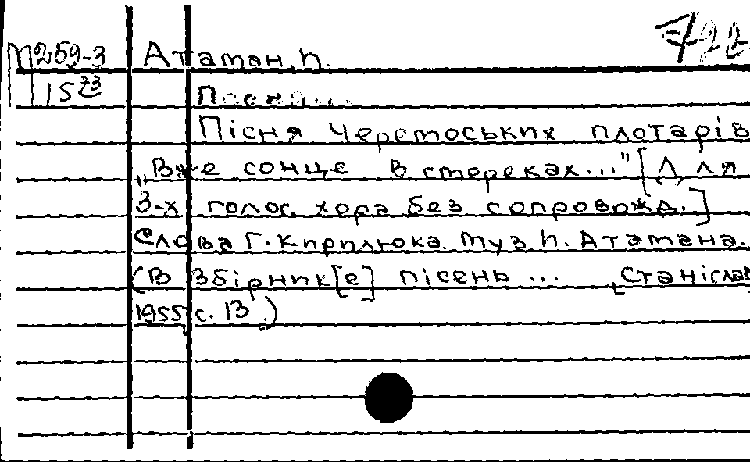 М259-3 Атаман, П.
1523
Пісня Черемоських плотарів
„Вже сонце в смереках..." [Для
3-х голос. хора без сопровожд.]
Слова Г. Кирилюка. Муз. П. Атамана.
(В Збірник[е] пісень ... Станіслав
1955, с. 13.)